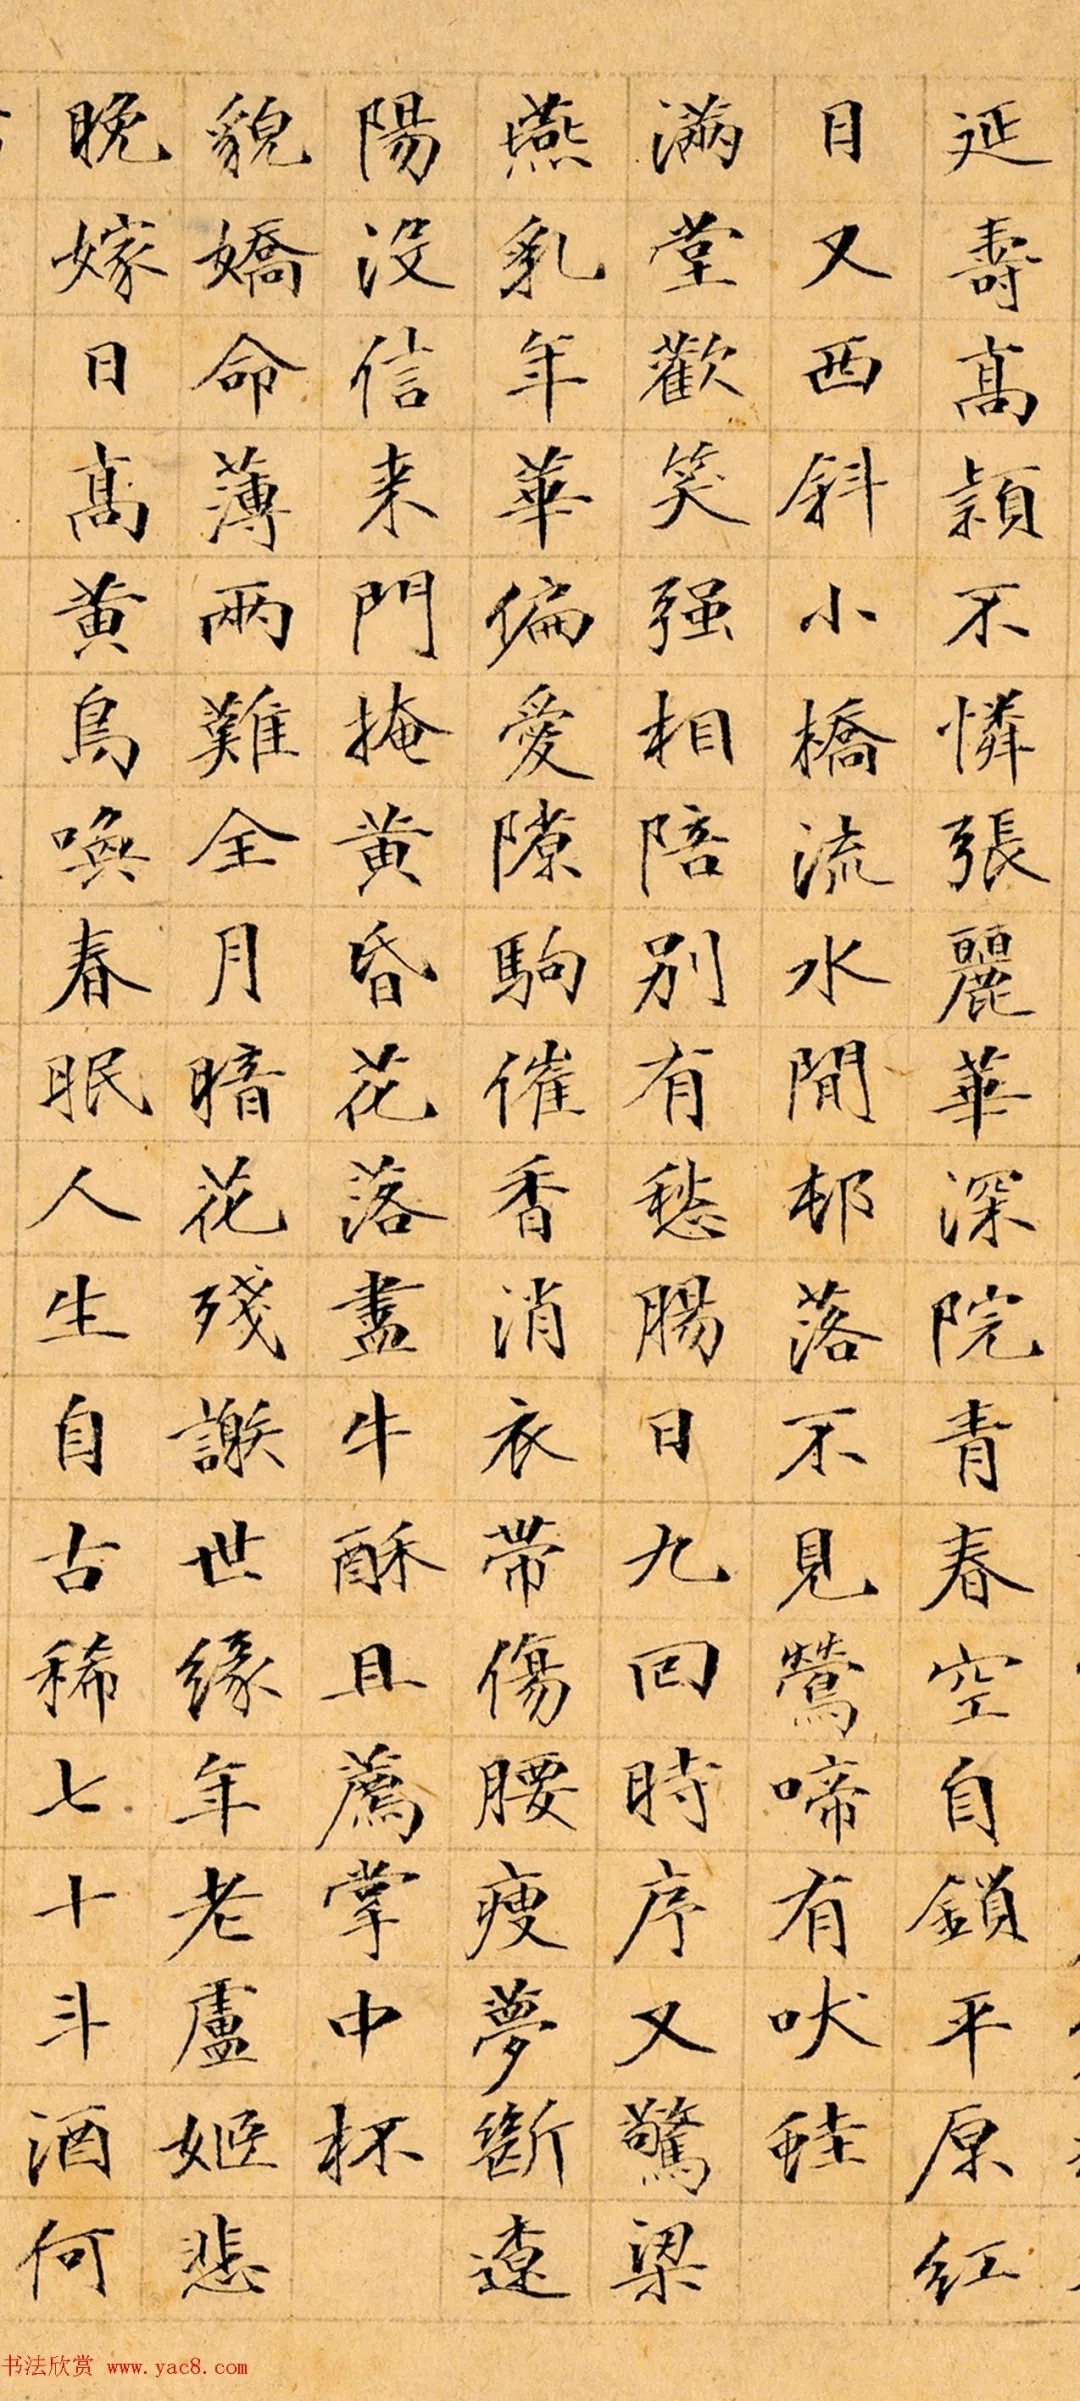 延壽高頴不憐張麗華深院青春空自鎖平原紅
日又西斜小橋流水閒邨落不見鶯啼有吠蛙
滿堂歡笑强相陪別有愁腸日九回時序又驚梁
燕乳年華偏愛隙駒催香消衣帶傷腰瘦夢斷遼
陽没信来門掩黄昏花落盡牛酥且薦掌中杯
貌嬌命薄兩難全月暗花殘謝世緣年老盧姬悲
晚嫁日高黄鳥喚春眠人生自古稀七十斗酒何
书法欣赏 www.yac8.com